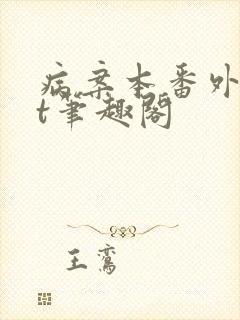 病案本番外
t笔趣阁
王鸾